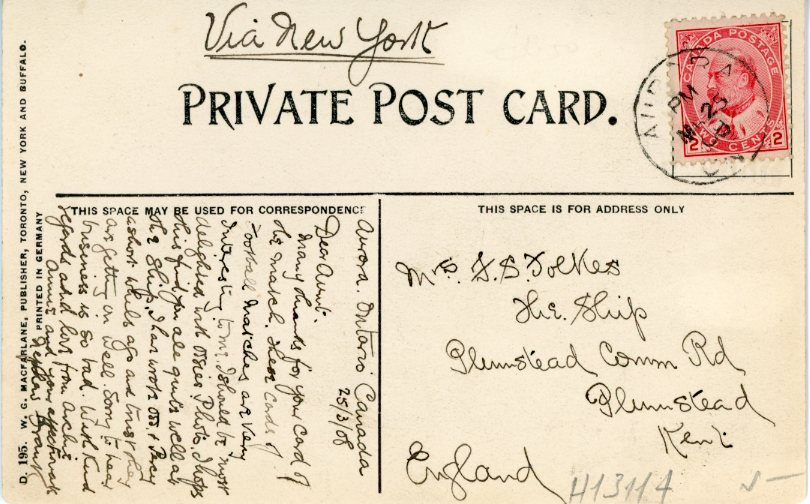 Via New York
PRIVATE POST CARD.
CANADA POSTAGE
2 TWO CENTS 2
AURORA
PM
25
THIS SPACE MAY BE USED FOR CORRESPONDENCE
THIS SPACE IS FOR ADDRESS ONLY
Aurora. Ontario Canada
25/3/08
Dear Aunt.
Many thanks for your card of
the match. These cards of
Football Matches are very
Interesting to me. I should be most
delighted with Photo. I hope
this finds you all quite well at
the Ship. I has wrote & Percy
a short while ago and trust they
are getting on well. Sorry to hear
business is so bad. With kind
regards and love from Archie
Annie and your affectionate
Nephew Frank
Mrs. F. S. Folkes
The. Ship
Plumstead Comm Rd
Plumstead
Kent
England
H13114
D. 195. W. G. MACFARLANE, PUBLISHER, TORONTO, NEW YORK AND BUFFALO.
PRINTED IN GERMANY